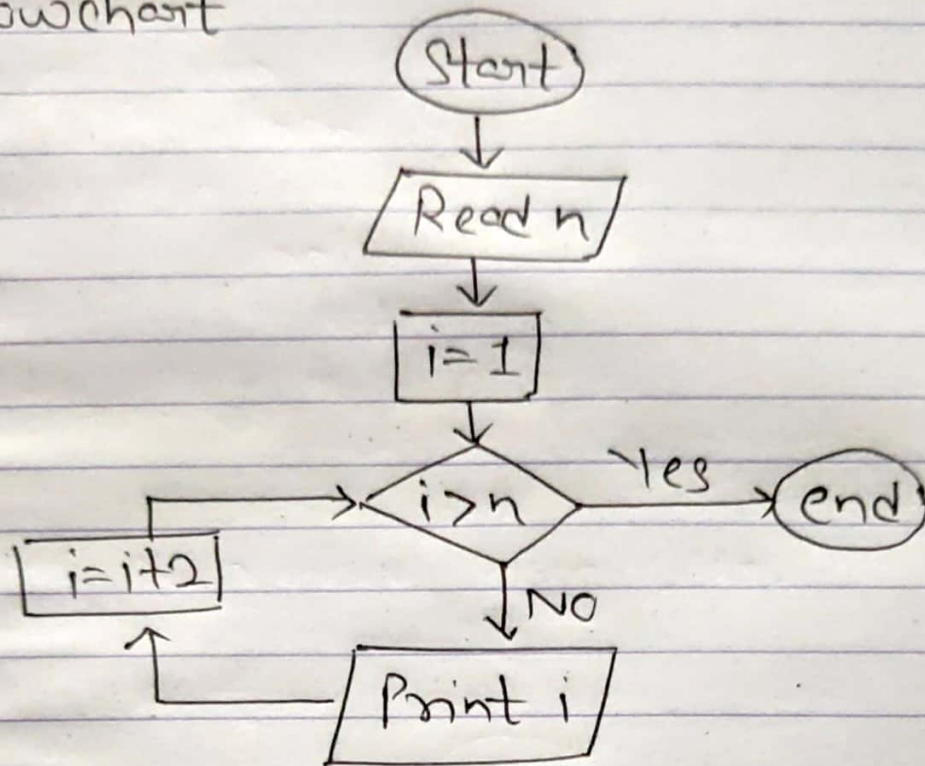 owchart
Start
Read n
i=1
i>n
Yes
end
i=i+2
NO
Print i